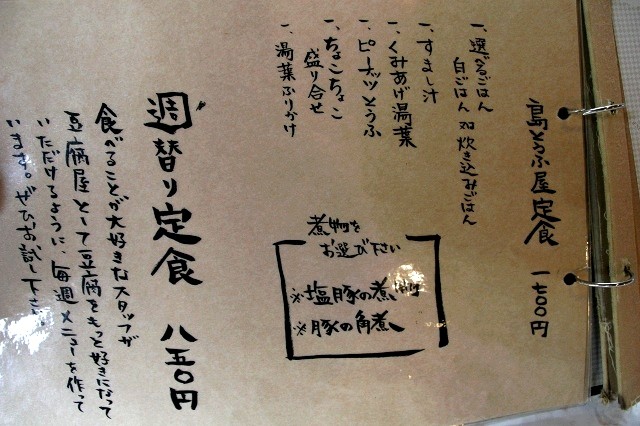 島とうふ屋定食 一七〇〇円
一、選べるごはん
白ごはん or 炊き込みごはん
一、すまし汁
一、くみあげ湯葉
一、ピーナッツとうふ
一、ちょこちょこ
盛り合せ
一、湯葉ふりかけ
煮物を
お選び下さい
※塩豚の煮付け
※豚の角煮
週替り定食 八五〇円
食べることが大好きなスタッフが
豆腐屋として豆腐をもっと好きになって
いただけるように、毎週メニューを作って
います。ぜひお試し下さい